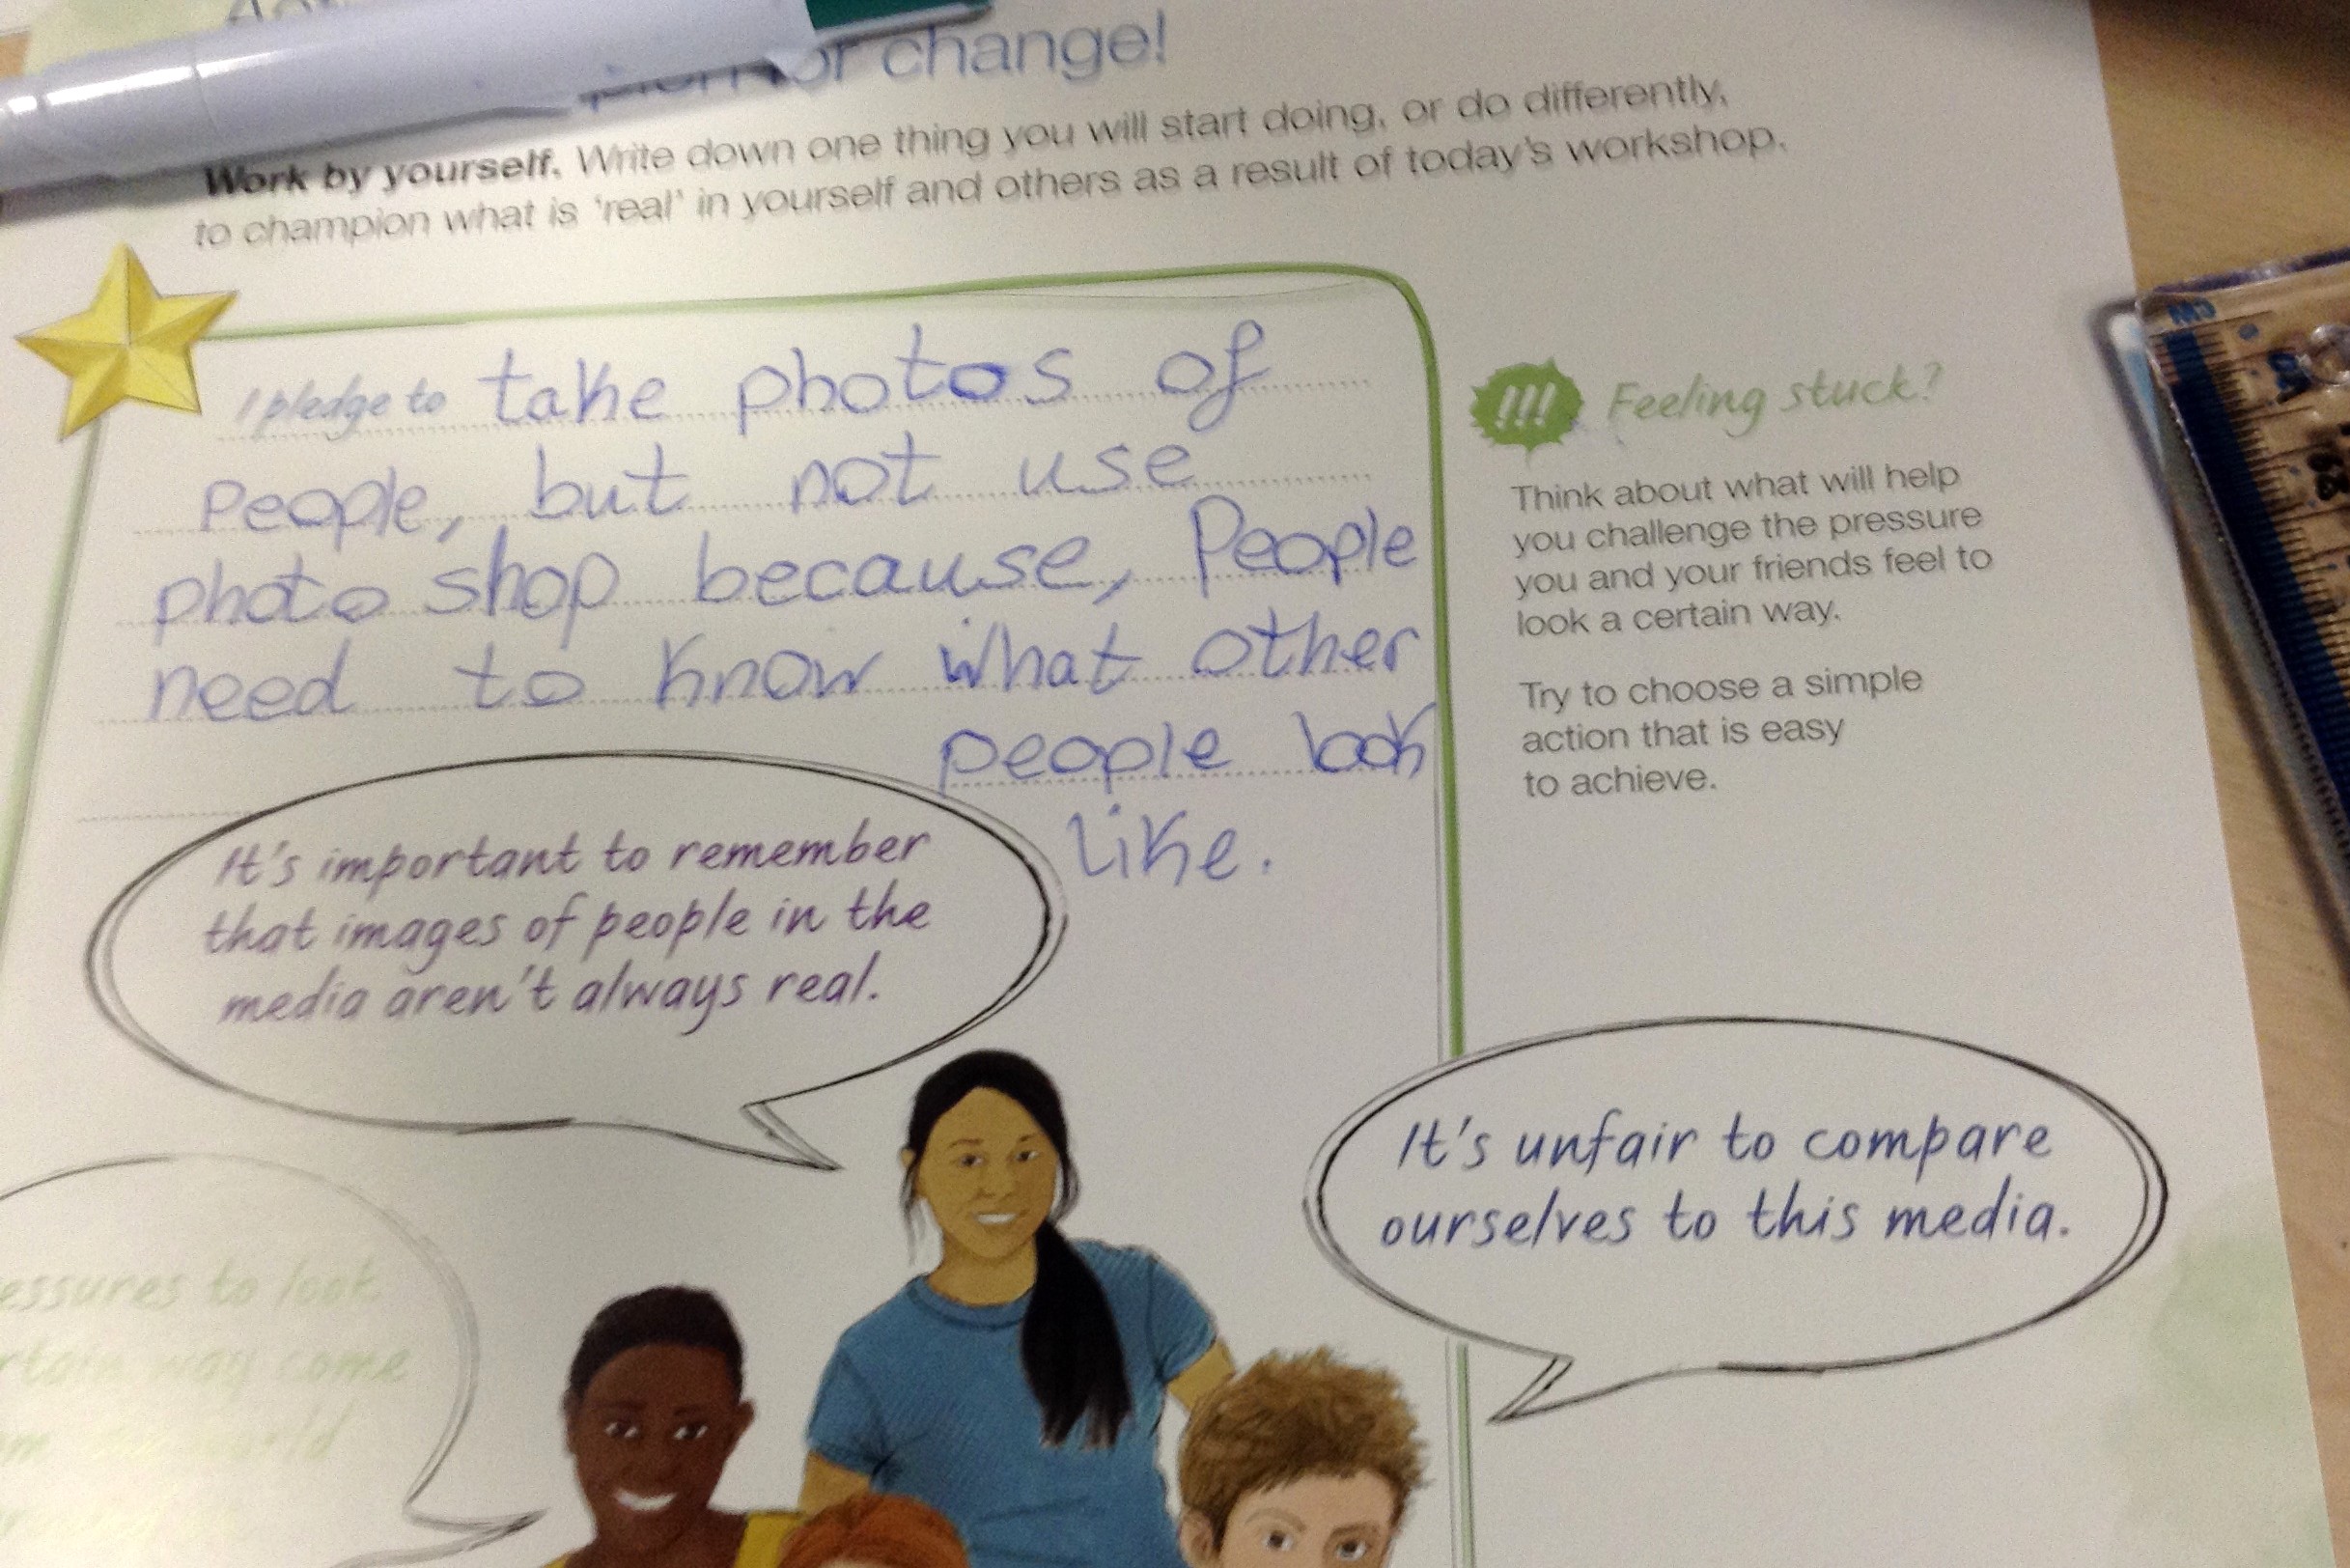 for change!
Work by yourself. Write down one thing you will start doing, or do differently,
to champion what is 'real' in yourself and others as a result of today's workshop.
I pledge to take photos of
People, but not use
photo shop because, People
need to know what other
people look
like.
!!! Feeling stuck?
Think about what will help
you challenge the pressure
you and your friends feel to
look a certain way.
Try to choose a simple
action that is easy
to achieve.
It's important to remember
that images of people in the
media aren't always real.
It's unfair to compare
ourselves to this media.
to look
way come
world